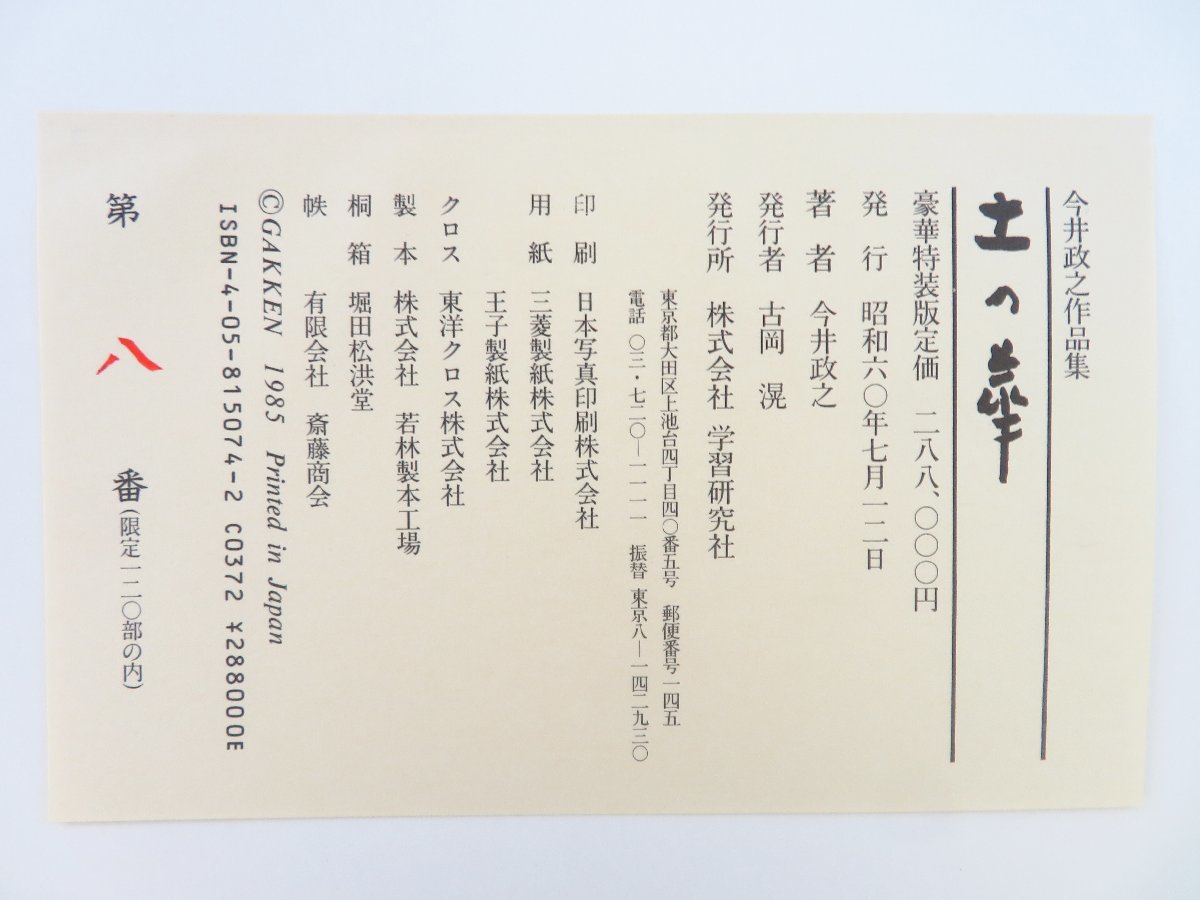 今井政之作品集
土の華
豪華特装版定価 二八八、〇〇〇円
発行 昭和六〇年七月一二日
著者 今井政之
発行者 古岡 滉
発行所 株式会社 学習研究社
東京都大田区上池台四丁目四〇番五号 郵便番号一四五
電話 〇三・七二〇―一一一一 振替 東京八―一四二九三〇
印刷 日本写真印刷株式会社
用紙 三菱製紙株式会社
王子製紙株式会社
クロス 東洋クロス株式会社
製本 株式会社 若林製本工場
桐箱 堀田松洪堂
帙 有限会社 斎藤商会
©GAKKEN 1985 Printed in Japan
ISBN-4-05-815074-2 C0372 ¥288000E
第 八 番(限定一二〇部の内)